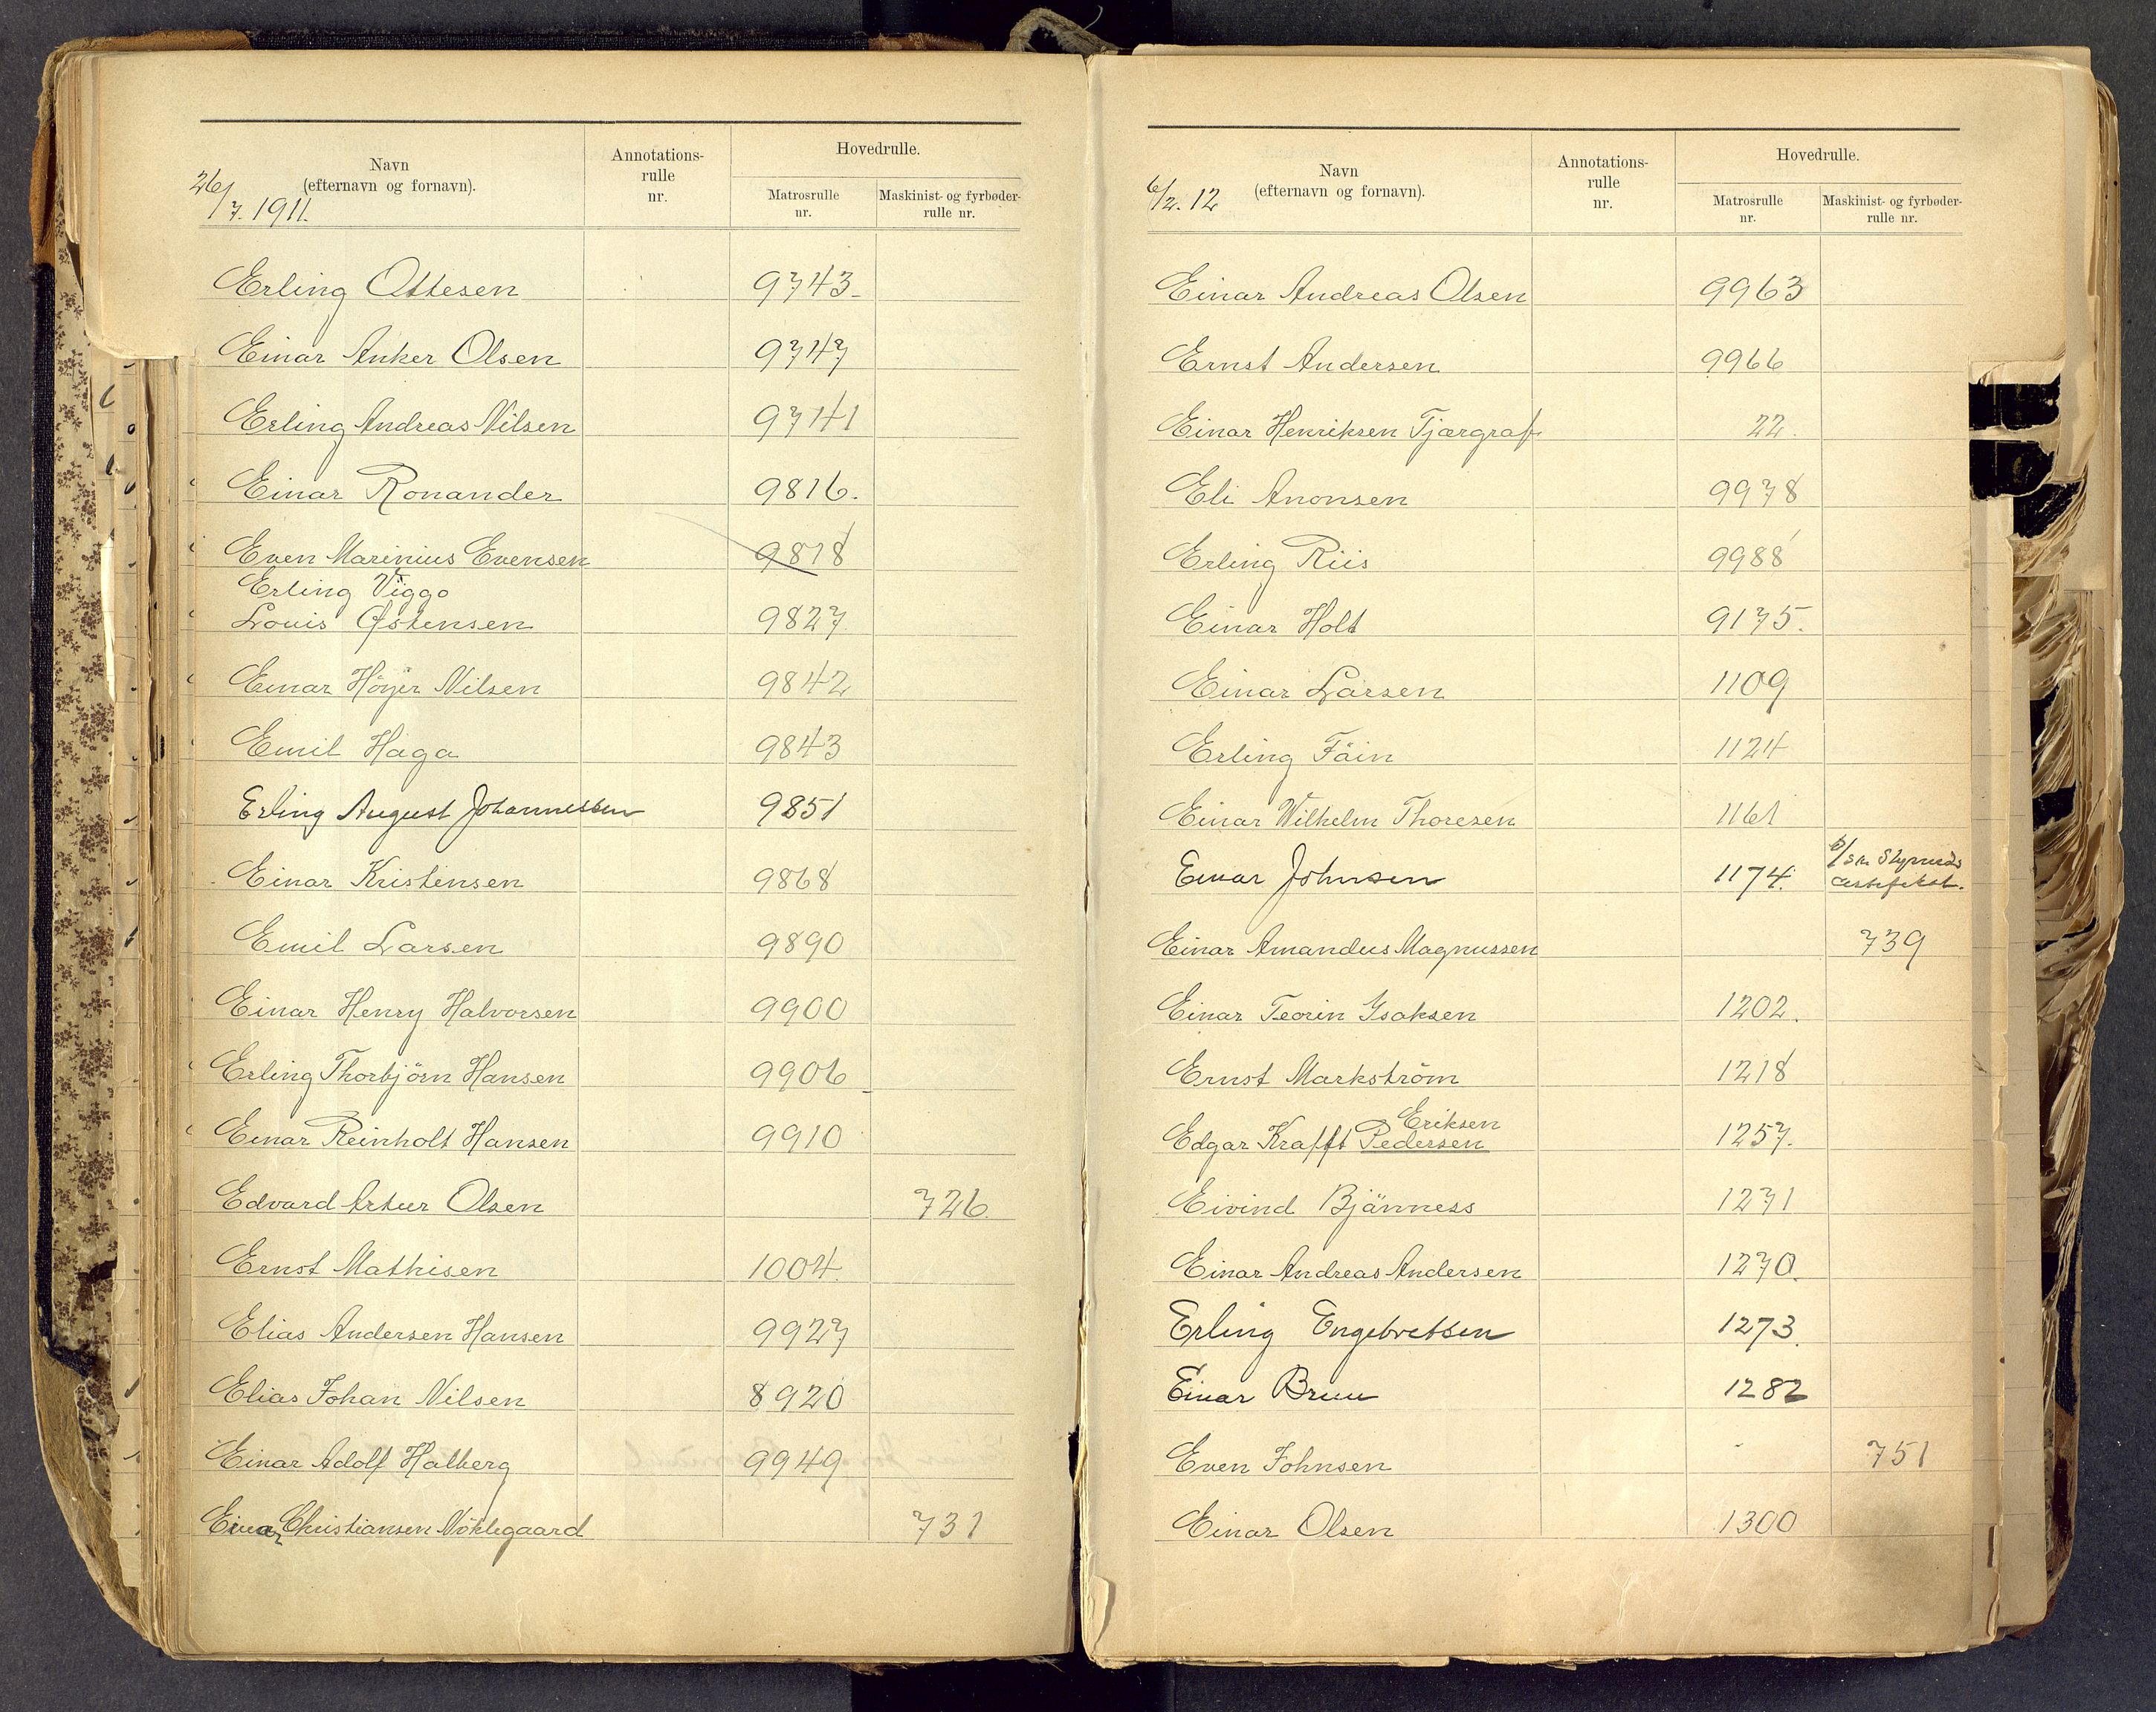 26/7. 1911.
Navn
(efternavn og fornavn).
Annotations-
rulle
nr.
Hovedrulle.
Matrosrulle
nr.
Maskinist- og fyrbøder-
rulle nr.
Erling Ottesen 9743
Einar Anker Olsen 9747
Erling Andreas Nilsen 9741
Einar Ronander 9816.
Even Marinius Evensen 9818
Erling Viggo
Louis Østensen 9827.
Einar Höyer Nilsen 9842
Emil Haga 9843
Erling August Johannessen 9851
Einar Kristensen 9868
Emil Larsen 9890
Einar Henry Halvorsen 9900
Erling Thorbjörn Hansen 9906
Einar Reinholt Hansen 9910
Edvard Artur Olsen 726.
Ernst Mathisen 1004.
Elias Andersen Hansen 9927
Elias Johan Nilsen 8920
Einar Adolf Halberg 9949
Einar Christiansen Nöklegaard 731
6/2. 12
Navn
(efternavn og fornavn).
Annotations-
rulle
nr.
Hovedrulle.
Matrosrulle
nr.
Maskinist- og fyrbøder-
rulle nr.
Einar Andreas Olsen 9963
Ernst Andersen 9966
Einar Henriksen Tjærgraf 22.
Eli Anonsen 9978
Erling Riis 9988
Einar Holt 9175.
Einar Larsen 1109
Erling Fåin 1124
Einar Wilhelm Thoresen 1161
Einar Johnsen 1174.
Einar Amandus Magnussen 739
Einar Teorin Isaksen 1202.
Ernst Markström 1218
Eriksen
Edgar Krafft Pedersen 1257.
Eivind Bjänness 1271
Einar Andreas Andersen 1270.
Erling Engebretsen 1273.
Einar Bruu 1282
Even Johnsen 751
Einar Olsen 1300